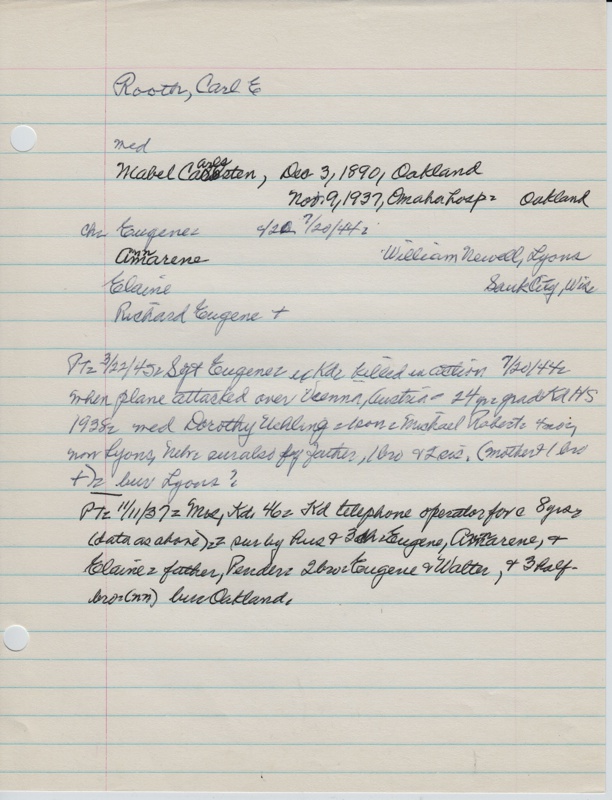 Rooth, Carl E
med
Mabel Carlsten, Dec 3, 1890, Oakland
Nov 9, 1937, Omaha hosp = Oakland
ch = Eugene = 4/20 7/20/44 =
Annarene William Newell, Lyons
Elaine Sauk City, Wisc
Richard Eugene +
PT = 3/22/45 = Sgt Eugene = Kd = killed in action 7/20/44 =
when plane attacked over Vienna, Austria = 24 yr = grad Kd HS
1938 = med Dorothy Uehling = son = Michael Robert = 4 mo,
now Lyons, Nebr = sur also by father, 1 bro & 2 sis. (mother & 1 bro
+) = bur Lyons ? =
PT = 11/11/37 = Mrs, Kd, 46 = Kd telephone operator for c 8 yrs
(data as above) = sur by hus & 3 ch = Eugene, Annarene, &
Elaine = father, Pender = 2 bro = Eugene & Walter, & 3 half
bro = (nn) bur Oakland.